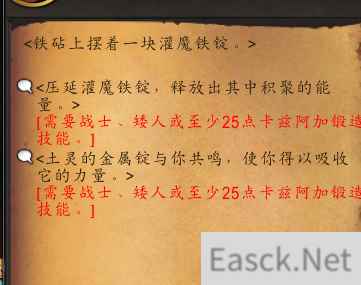 <铁砧上摆着一块灌魔铁锭。>
<压延灌魔铁锭，释放出其中积聚的能
量。>
[需要战士、矮人或至少25点卡兹阿加锻造
技能。]
<土灵的金属锭与你共鸣，使你得以吸收
它的力量。>
[需要战士、矮人或至少25点卡兹阿加锻造
技能。]
Easck.Net